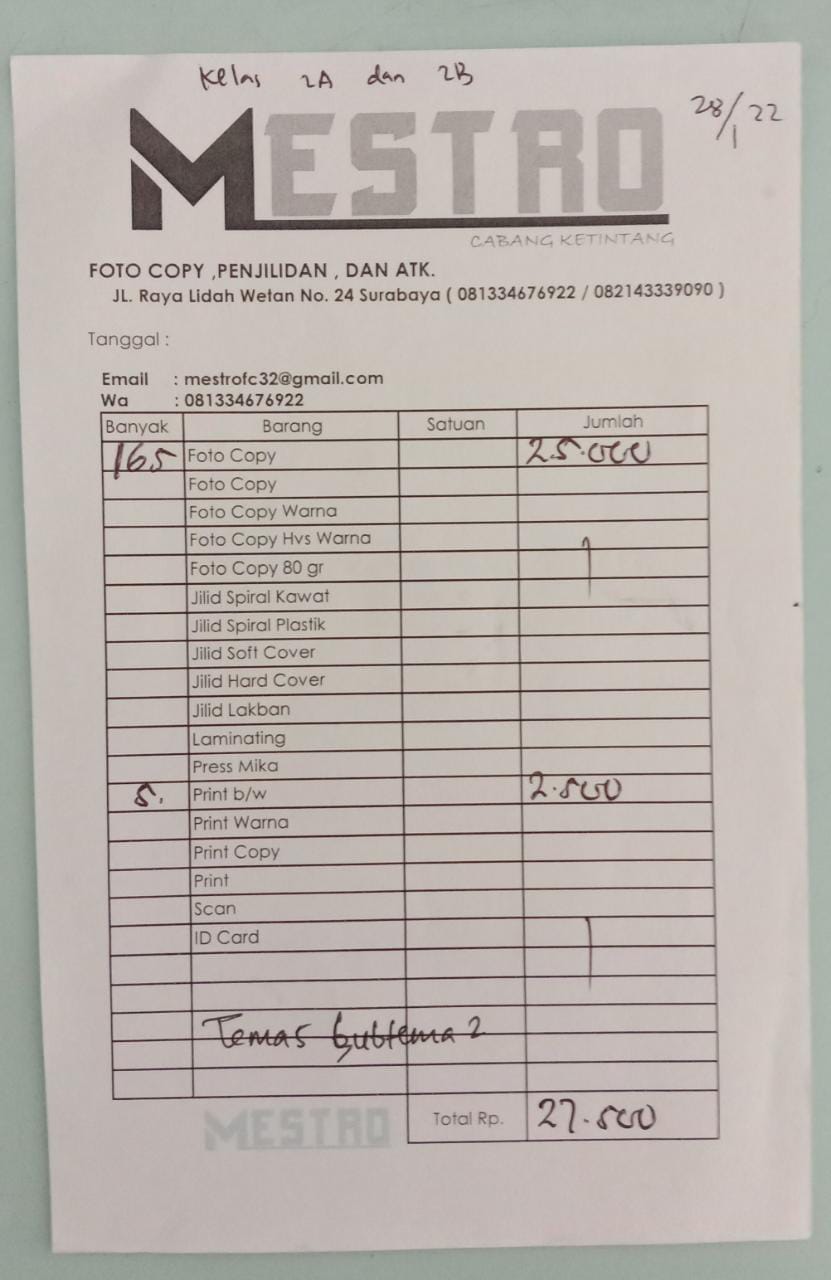 Kelas 2A dan 2B
28/1 22
MESTRO
CABANG KETINTANG
FOTO COPY ,PENJILIDAN , DAN ATK.
JL. Raya Lidah Wetan No. 24 Surabaya ( 081334676922 / 082143339090 )
Tanggal :
Email : mestrofc32@gmail.com
Wa : 081334676922
Banyak Barang Satuan Jumlah
165 Foto Copy 25.000
Foto Copy
Foto Copy Warna
Foto Copy Hvs Warna
Foto Copy 80 gr
Jilid Spiral Kawat
Jilid Spiral Plastik
Jilid Soft Cover
Jilid Hard Cover
Jilid Lakban
Laminating
Press Mika
5. Print b/w 2.500
Print Warna
Print Copy
Print
Scan
ID Card
Tema 5 Subtema 2
MESTRO
Total Rp. 27.500